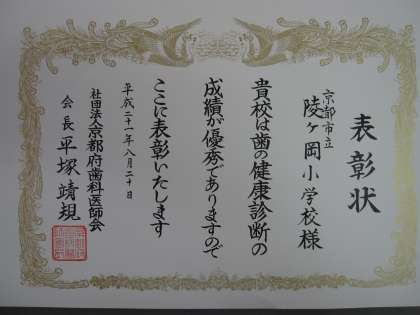 表彰状
京都市立
陵ヶ岡小学校様
貴校は歯の健康診断の
成績が優秀でありますので
ここに表彰いたします
平成二十一年八月二十日
社団法人京都府歯科医師会
会長平塚靖規